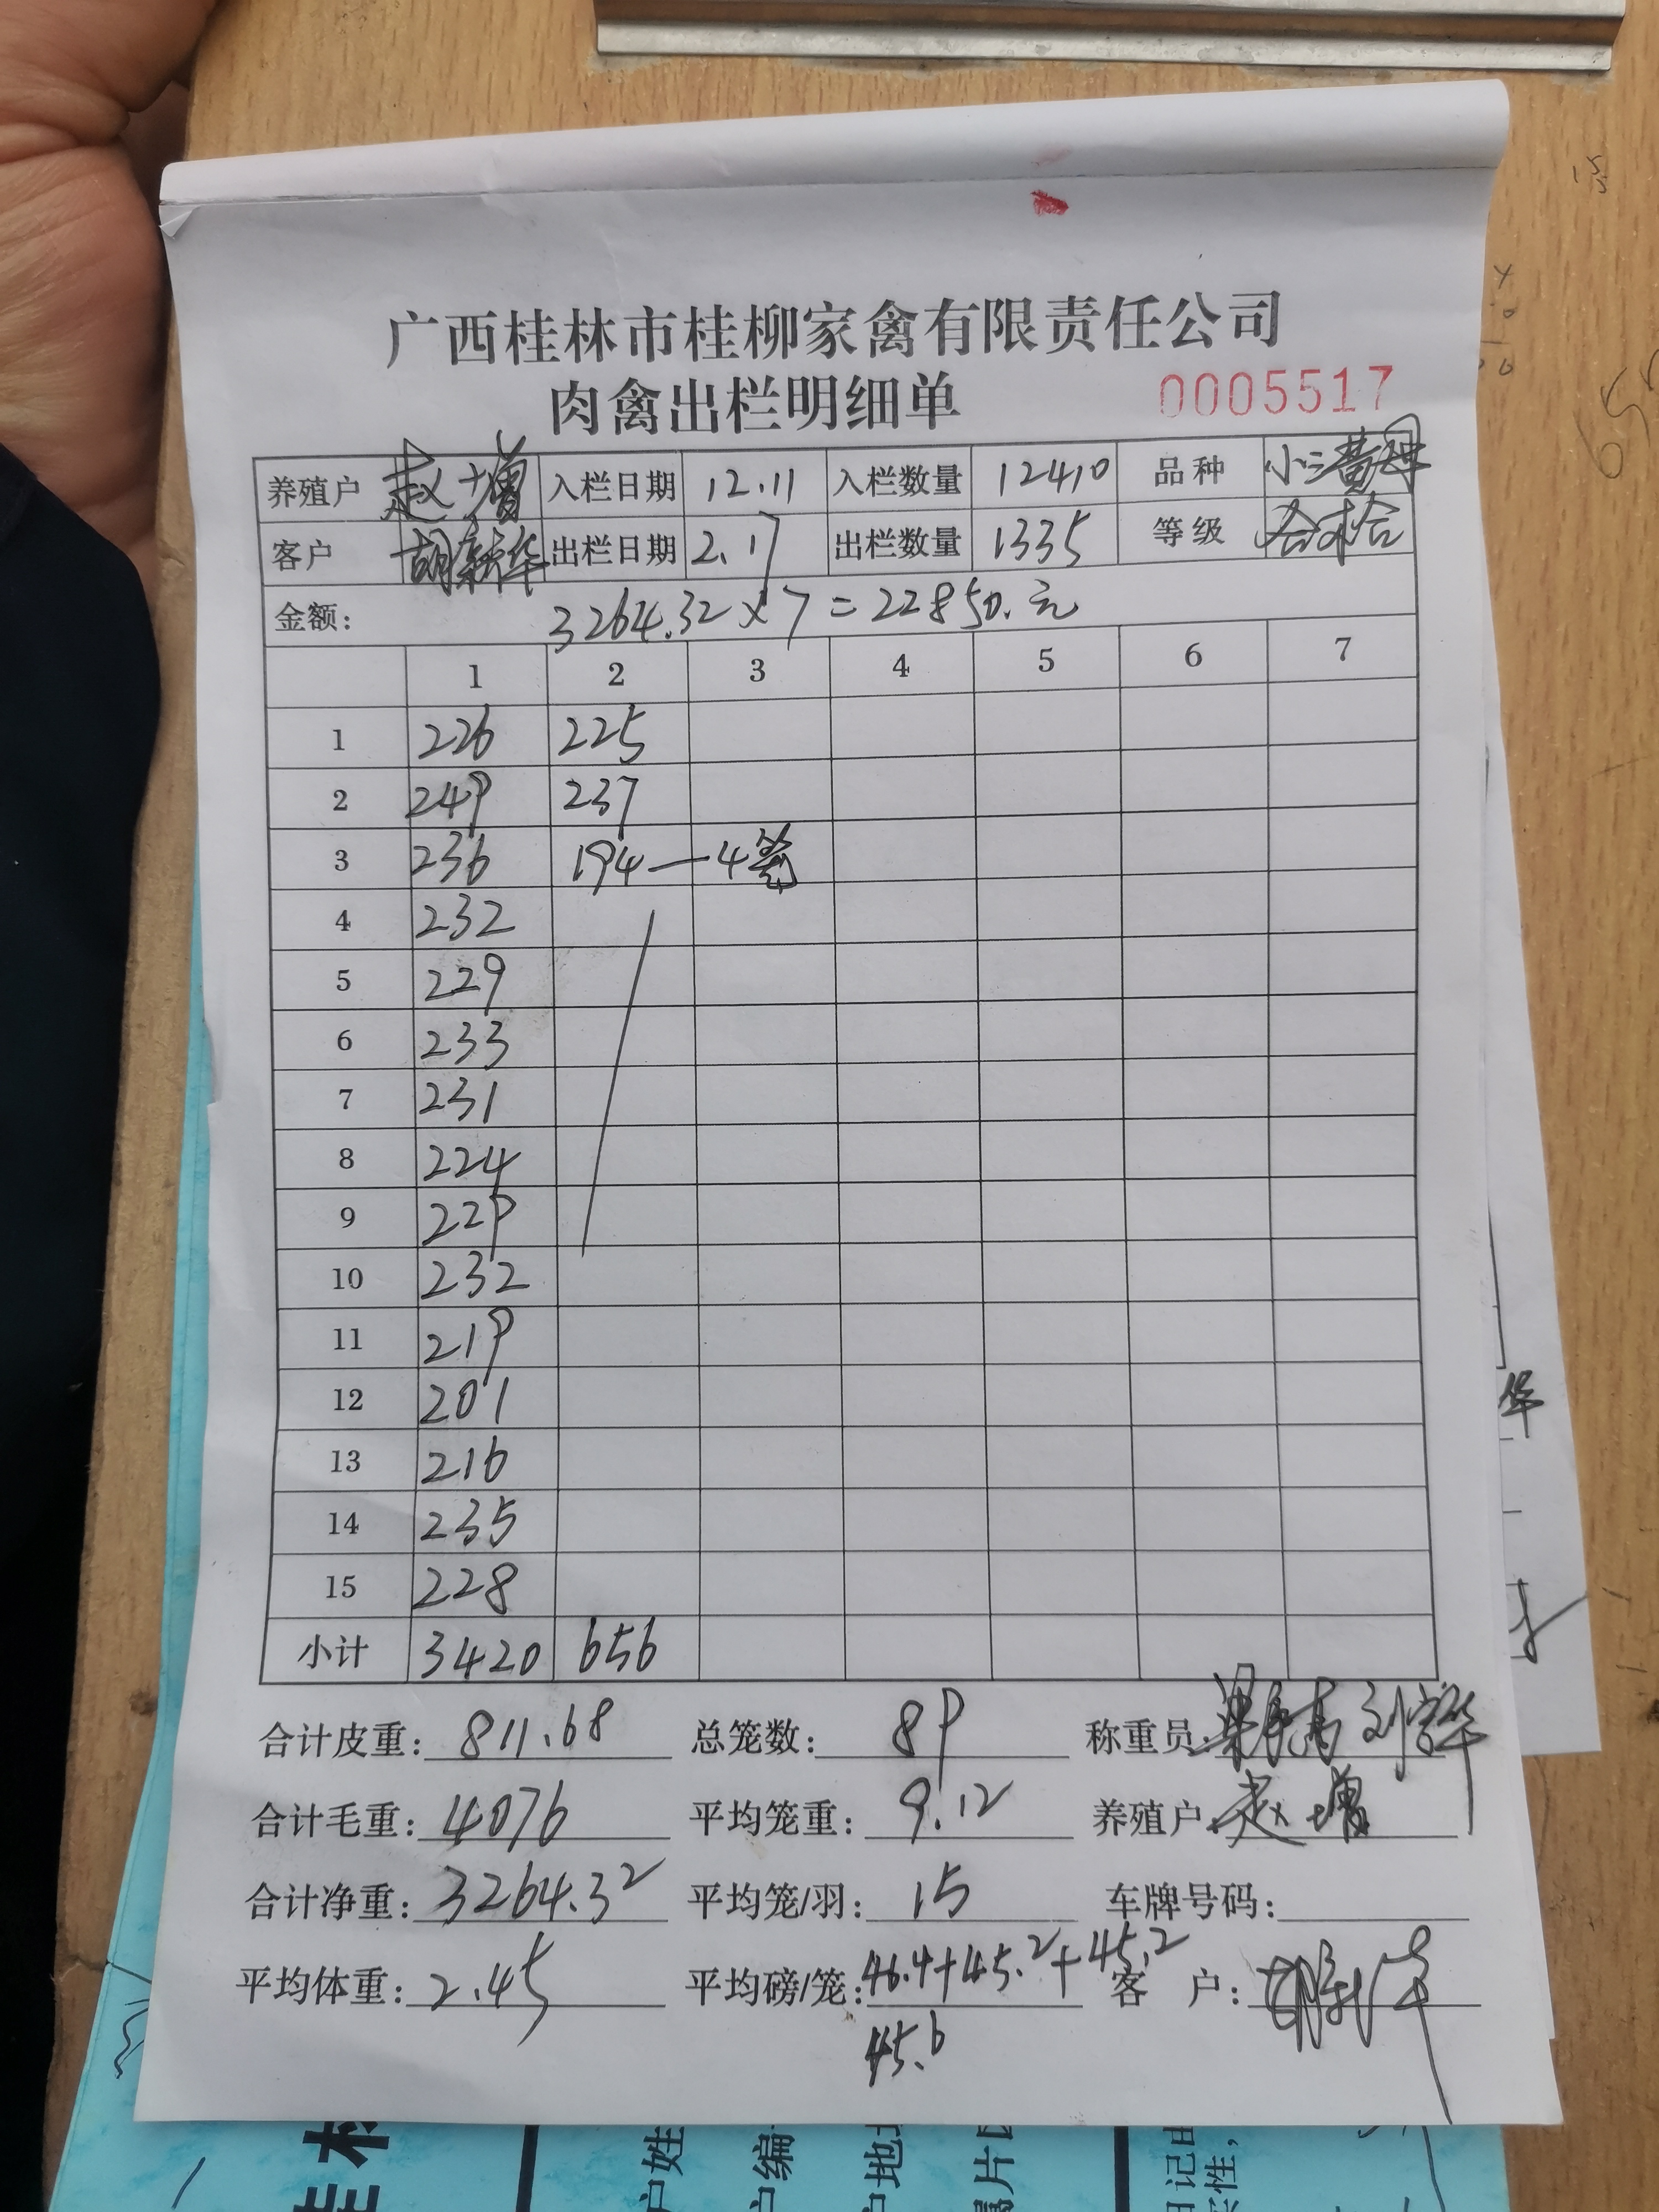 广西桂林市桂柳家禽有限责任公司
肉禽出栏明细单 0005517
养殖户 赵增 入栏日期 12.11 入栏数量 12410 品种 小三黄母
客户 胡新华 出栏日期 2.17 出栏数量 1335 等级 合格
金额: 3264.32×7=22850.元
1 2 3 4 5 6 7
1 226 225
2 249 237
3 236 194—4笼
4 232
5 229
6 233
7 231
8 224
9 229
10 232
11 219
12 201
13 216
14 235
15 228
小计 3420 656
合计皮重: 811.68 总笼数: 89 称重员:
合计毛重: 4076 平均笼重: 9.12 养殖户: 赵增
合计净重: 3264.32 平均笼/羽: 15 车牌号码:
平均体重: 2.45 平均磅/笼: 46.4+45.2+45.2 客 户:
45.6
华
户姓
户编
户地
属片区